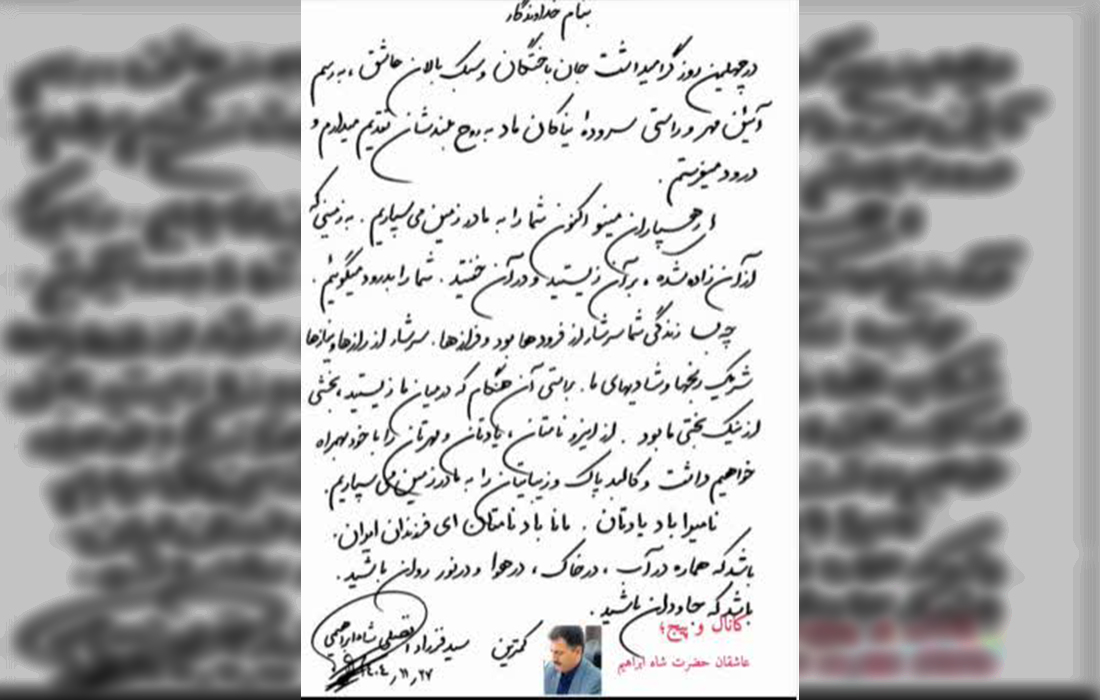 بنام خداوندگار
در چهلمین روز گرامیداشت جان باختگان و سبک بالان عاشق، به رسم
آئین مهر و راستی سروده نیاکان ماد به روح بلندشان تقدیم میدارم و
درود میفرستم.
ای رهسپاران مینو اکنون شما را به مادر زمین می سپاریم. به زمینی که
از آن زاده شده، بر آن زیستید و در آن خفتید. شما را بدرود میگوئیم.
زندگی شما سرشار از فرودها بود و فرازها. سرشار از رازها و نیازها
شریک رنجها و شادیهای ما. براستی آن هنگام که در میان ما زیستید، بخشی
از نیک بختی ما بود. از اینرو نامتان، یادتان و مهرتان را با خود بهمراه
خواهیم داشت و کالبد پاک و زیباتان را به مادر زمین می سپاریم.
نامیرا باد یادتان. مانا باد نامتان ای فرزندان ایران.
باشد که هماره در آب، در خاک، در هوا و در نور روان باشید.
باشد که جاودان باشید.
کمترین سید فرزاد افضلی شاه ابراهیمی
۱۴۰۴/۱۱/۲۷
کانال و پیج؛
عاشقان حضرت شاه ابراهیم